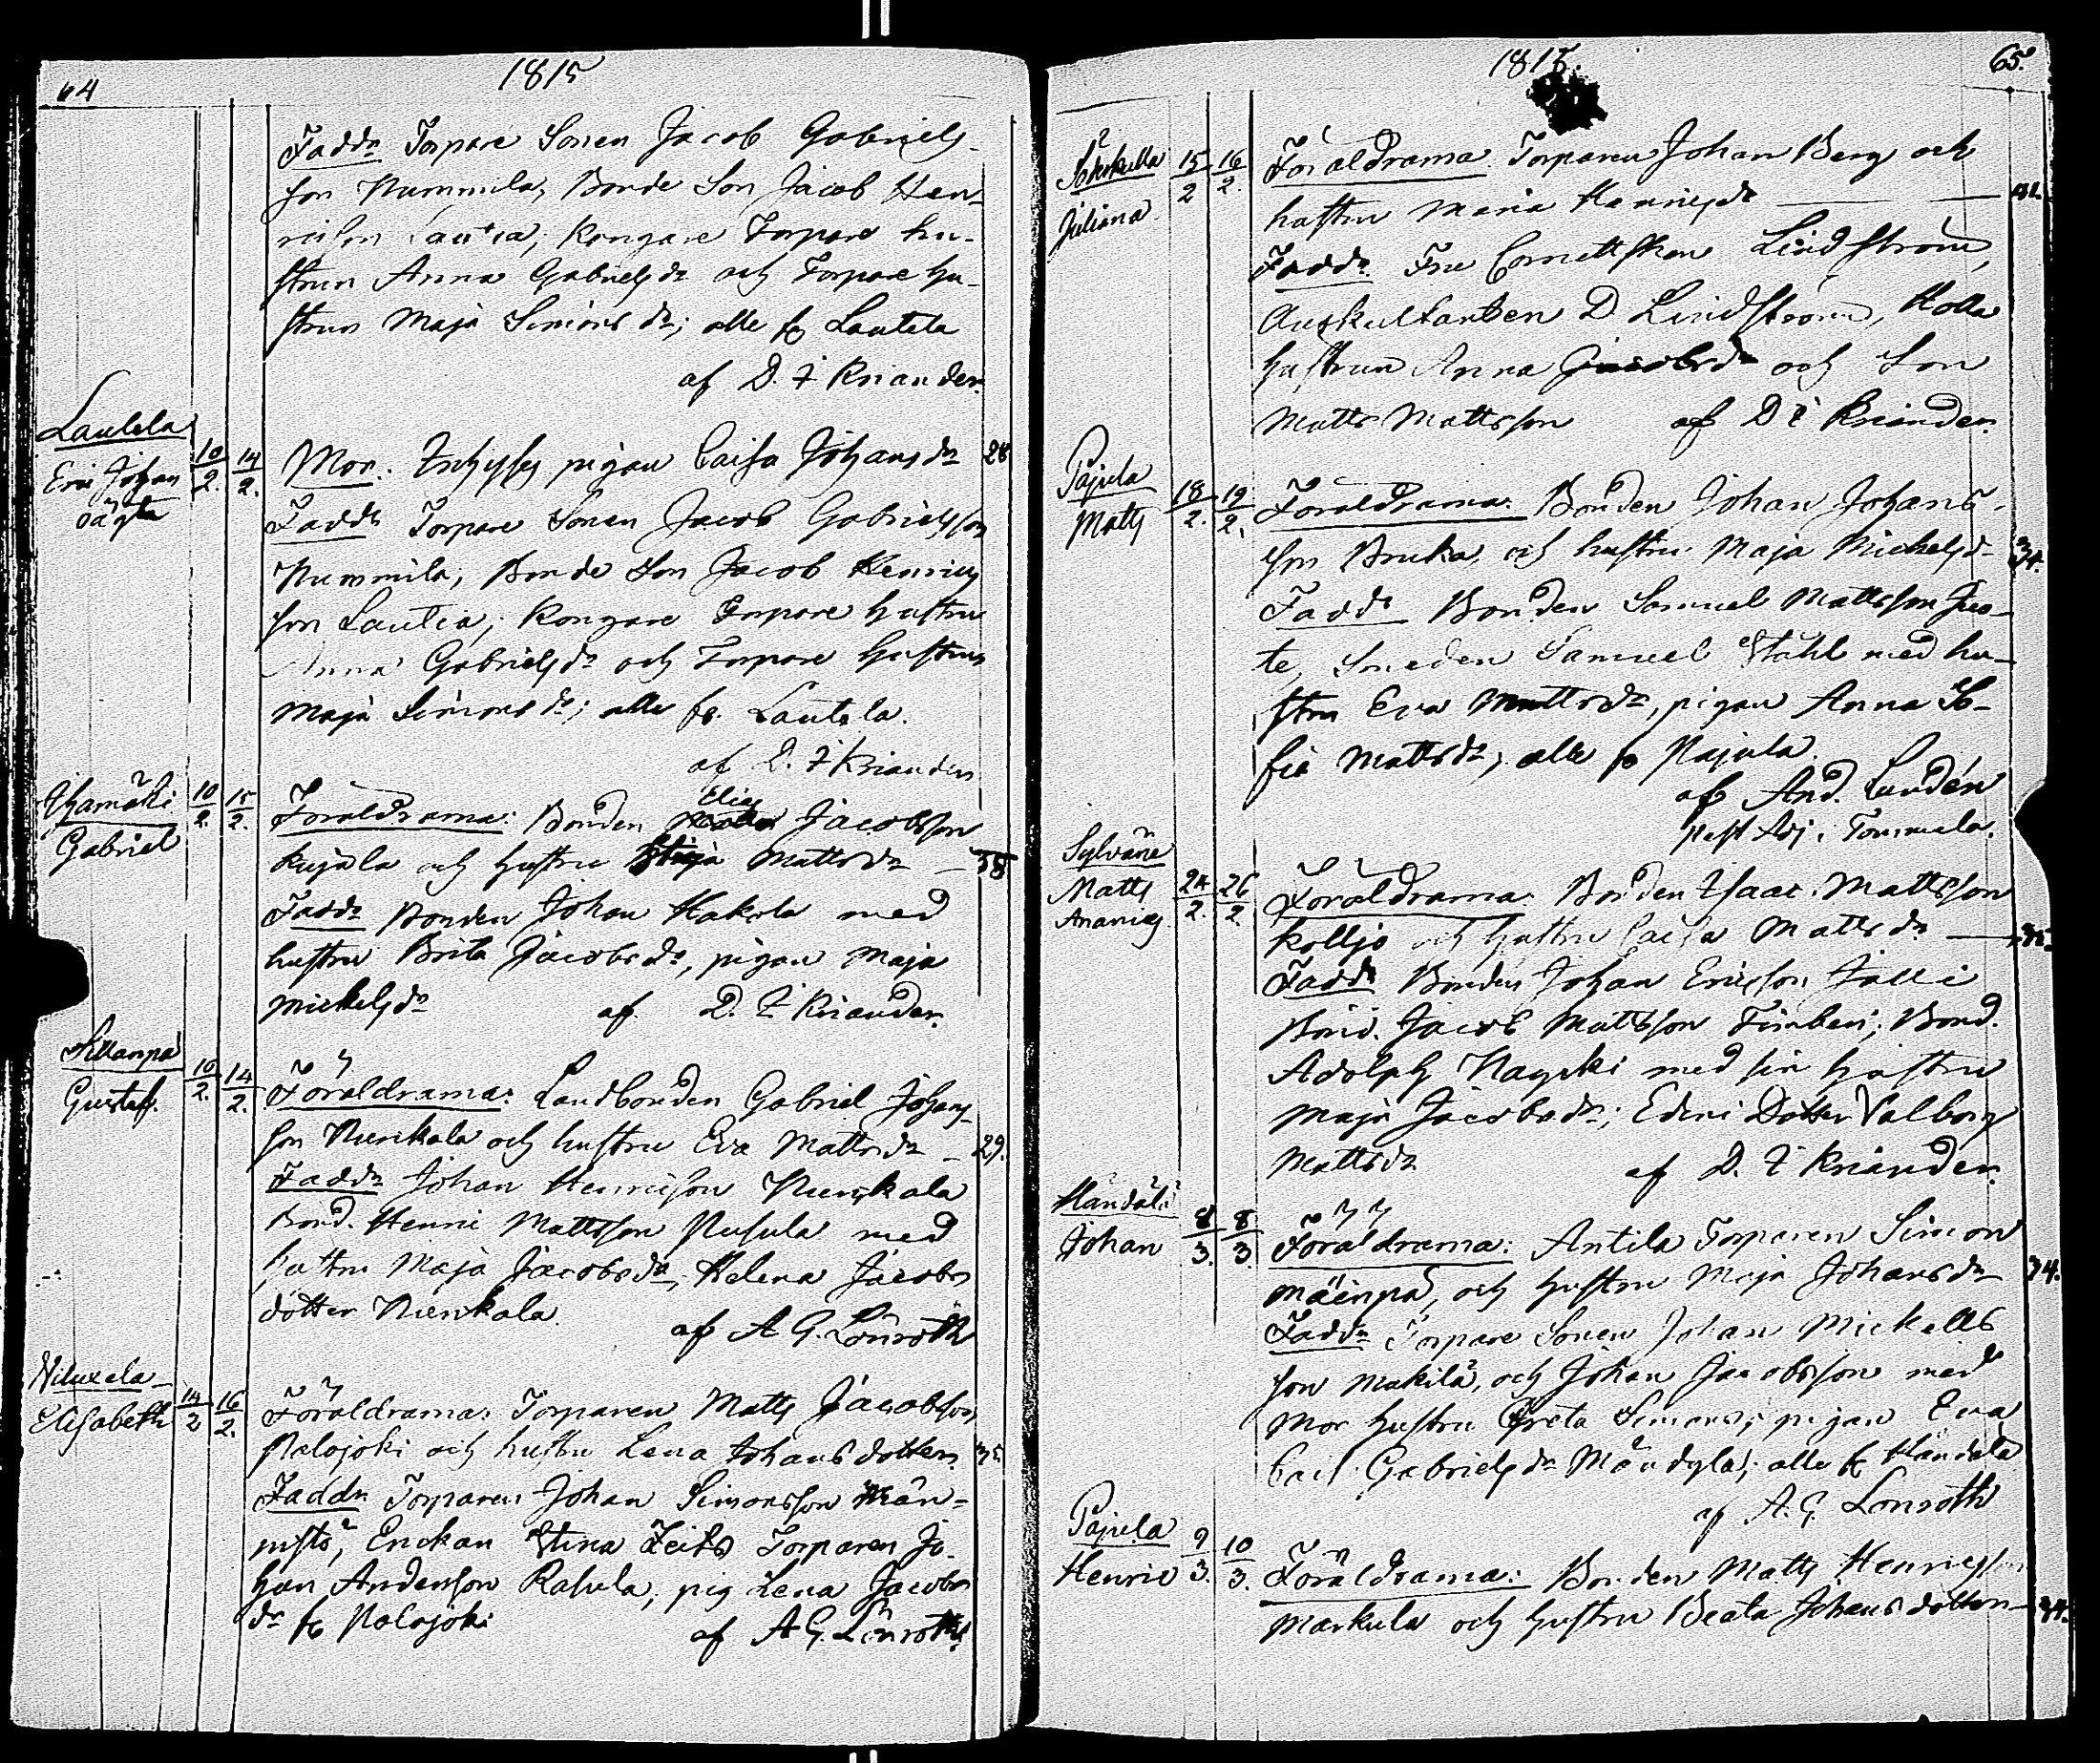 64
1815
Fadd.r Torpare Sonen Jacob Gabriels-
son Nummila, Bonde Son Jacob Hen-
ricsson Lautia, Kongare Torpare hu-
strun Anna Gabrielsd.r och Torpare hu-
strun Maja Simonsd.r; alle fr. Lautela
af D. F Kriander.
Lautela
Eric Johan
oägta
10/2. 14/2.
Mor: Inhyses pigan Caisa Johansd.r 28
Fadd.r Torpare Sonen Jacob Gabrielsson
Nummila, Bonde Son Jacob Henrics
son Lautia, Kongare Torpare hustru
Anna Gabrielsd.r och Torpare hustrun
Maja Simonsd.r; alle fr. Lautela.
af D. F Kriander
Gabriel
10/2. 15/2.
Elias
Föräldrarna: Bonden Jacobsson
Kujala och hustru Mattsd.r 38
Fadd.r Bonden Johan Hakola med
hustru Brita Jacobsd.r, pigan Maja
Mickelsd.r af D. F Kriander.
Sillanpä
Gustaf.
10/2. 14/2.
Föräldrarna: Landbonden Gabriel Johans-
son Nienkala och hustru Eva Mattsd.r 29.
Fadd.r Johan Henricsson Nienkala
Bond. Henric Mattsson Pusula med
hustru Maja Jacobsd.r, Helena Jacobs
dotter Nienkala.
af A G. Lönroth
Niluxela
Elisabeth
14/2 16/2.
Föräldrarna: Torparen Matts Jacobsson
Palojoki och hustru Lena Johans dotter.
Fadd.r Torparen Johan Simonsson Män-
nistö, Enckan Stina Torparen Jo-
han Andersson Rahula, pig Lena Jacobs
d.r fr Palojoki
af A G. Lönroth
1815.
65.
Juliana
15/2 16/2.
Föräldrarna: Torparen Johan Berg och
hustru Maria Henricsd.r
Fadd.r Fru Cornettskan Lindström,
Auskultanten D. Lindström,
hustrun Anna Jacobsd.r och Son
Matts Mattsson af D F Kriander.
Pajula
Matts
18/2. 19/2.
Föräldrarna: Bonden Johan Johans-
son Bruka, och hustru Maja Mickelsd.r 34.
Fadd.r Bonden Samuel Mattsson Juo-
te, Smeden Samuel Ståhl med hu-
stru Eva Mattsd.r, pigan Anna So-
fia Mattsd.r, alle fr Pajula.
af And. Lundén
Past Adj. i Tommela.
Sylväne
Matts
Ananias
24/2. 26/2
Föräldrarna: Bonden Isaac Mattsson
Kolljo och hustru Caisa Mattsd.r
Fadd.r Bonden Johan Ericsson Jalli
Bond. Jacob Mattsson Timberi; Bond.
Adolph Nayski med sin hustru
Maja Jacobsd.r; Dotter Valborg
Mattsd.r af D. F Kriander.
Händälä
Johan
8/3. 8/3.
Föräldrarna: Antila Torparen Simon
Mäenpä, och hustru Maja Johansd.r 34.
Fadd.r Torpare Sonen Johan Mickells
son Mäkilä, och Johan Jacobsson med
Mor hustru Greta Simonsd., pigan Eva
Gabrielsd.r Mändylä; alle fr Händälä
af A. G. Lönroth
Pajula
Henric
9/3. 10/3.
Föräldrarna: Bonden Matts Henricsson
Markula och hustru Beata Johans dotter 34.